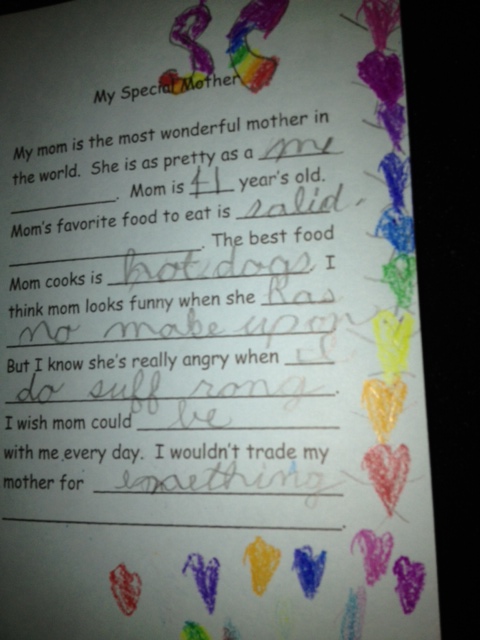 SC
My Special Mother
My mom is the most wonderful mother in
the world. She is as pretty as a me
. Mom is 41 year's old.
Mom's favorite food to eat is salid.
. The best food
Mom cooks is hot dogs. I
think mom looks funny when she has
no make upon
But I know she's really angry when I
do suff rong.
I wish mom could be
with me every day. I wouldn't trade my
mother for emaething
.